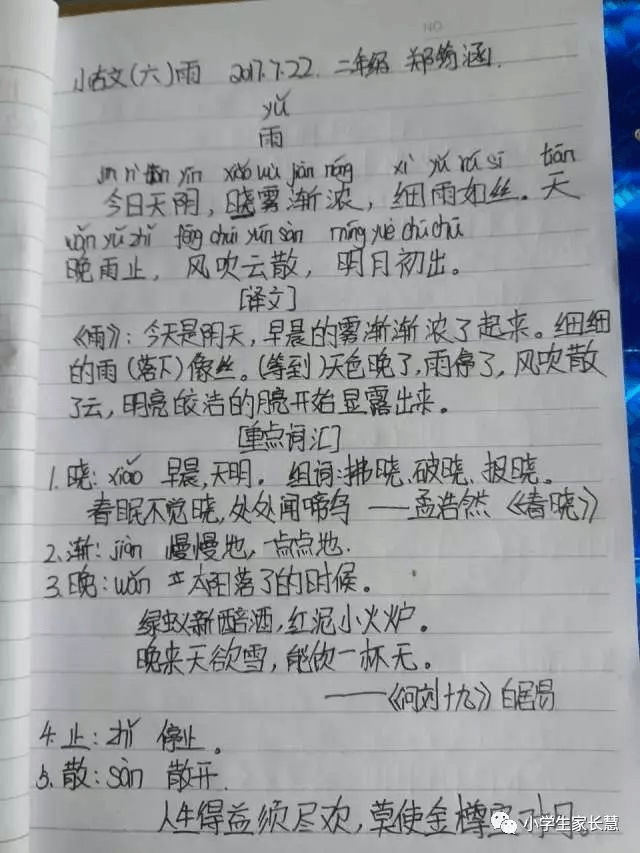 小古文(六)雨 2017.7.22. 二年级 郑钧涵.
yǔ
雨
jīn rì tiān yīn xiǎo wù jiàn nóng xì yǔ rú sī tiān
今日天阴，晓雾渐浓，细雨如丝。天
wǎn yǔ zhǐ fēng chuī yún sàn míng yuè chū chū
晚雨止，风吹云散，明月初出。
[译文]
《雨》：今天是阴天，早晨的雾渐渐浓了起来。细细
的雨(落下)像丝。(等到)天色晚了，雨停了，风吹散
了云，明亮皎洁的月亮开始显露出来。
[重点词汇]
1.晓：xiǎo 早晨，天明。组词：拂晓、破晓、报晓。
春眠不觉晓，处处闻啼鸟 ——孟浩然《春晓》
2.渐：jiàn 慢慢地，一点点地.
3.晚：wǎn 太阳落了的时候。
绿蚁新醅酒，红泥小火炉。
晚来天欲雪，能饮一杯无。
——《问刘十九》白居易
4.止：zhǐ 停止。
5.散：sàn 散开.
人生得益须尽欢，莫使金樽空对月。
小学生家长慧
NO